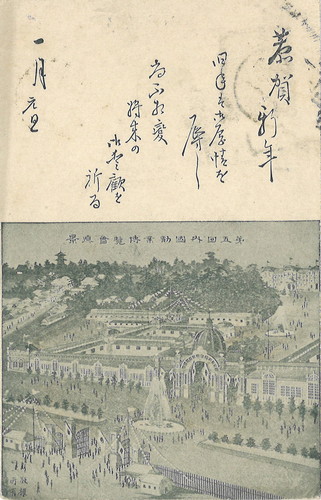 恭賀新年
旧年は御厚情を
辱し
尚不相変
将来の
御愛顧を
祈る
一月元旦
第五回内國勸業博覽會